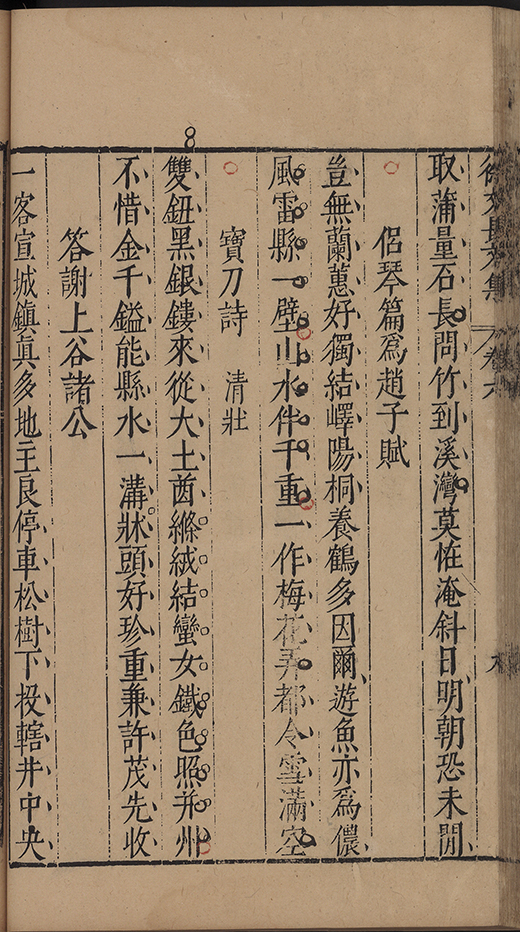 徐文長文集 卷六 九
取蒲量石長問竹到溪灣莫恠淹斜日明朝恐未閒
侶琴篇爲趙子賦
豈無蘭蕙好獨結嶧陽桐養鶴多因爾遊魚亦爲儂
風雷縣一壁山水伴千重一作梅花弄都令雪滿空
寶刀詩 清壯
雙鈕黑銀鏤來從大土酋絛絨結蠻女鐵色照并州
不惜金千鎰能縣水一溝牀頭好珍重兼許茂先收
答謝上谷諸公
一客宣城鎮眞多地主良停車松樹下投轄井中央
8